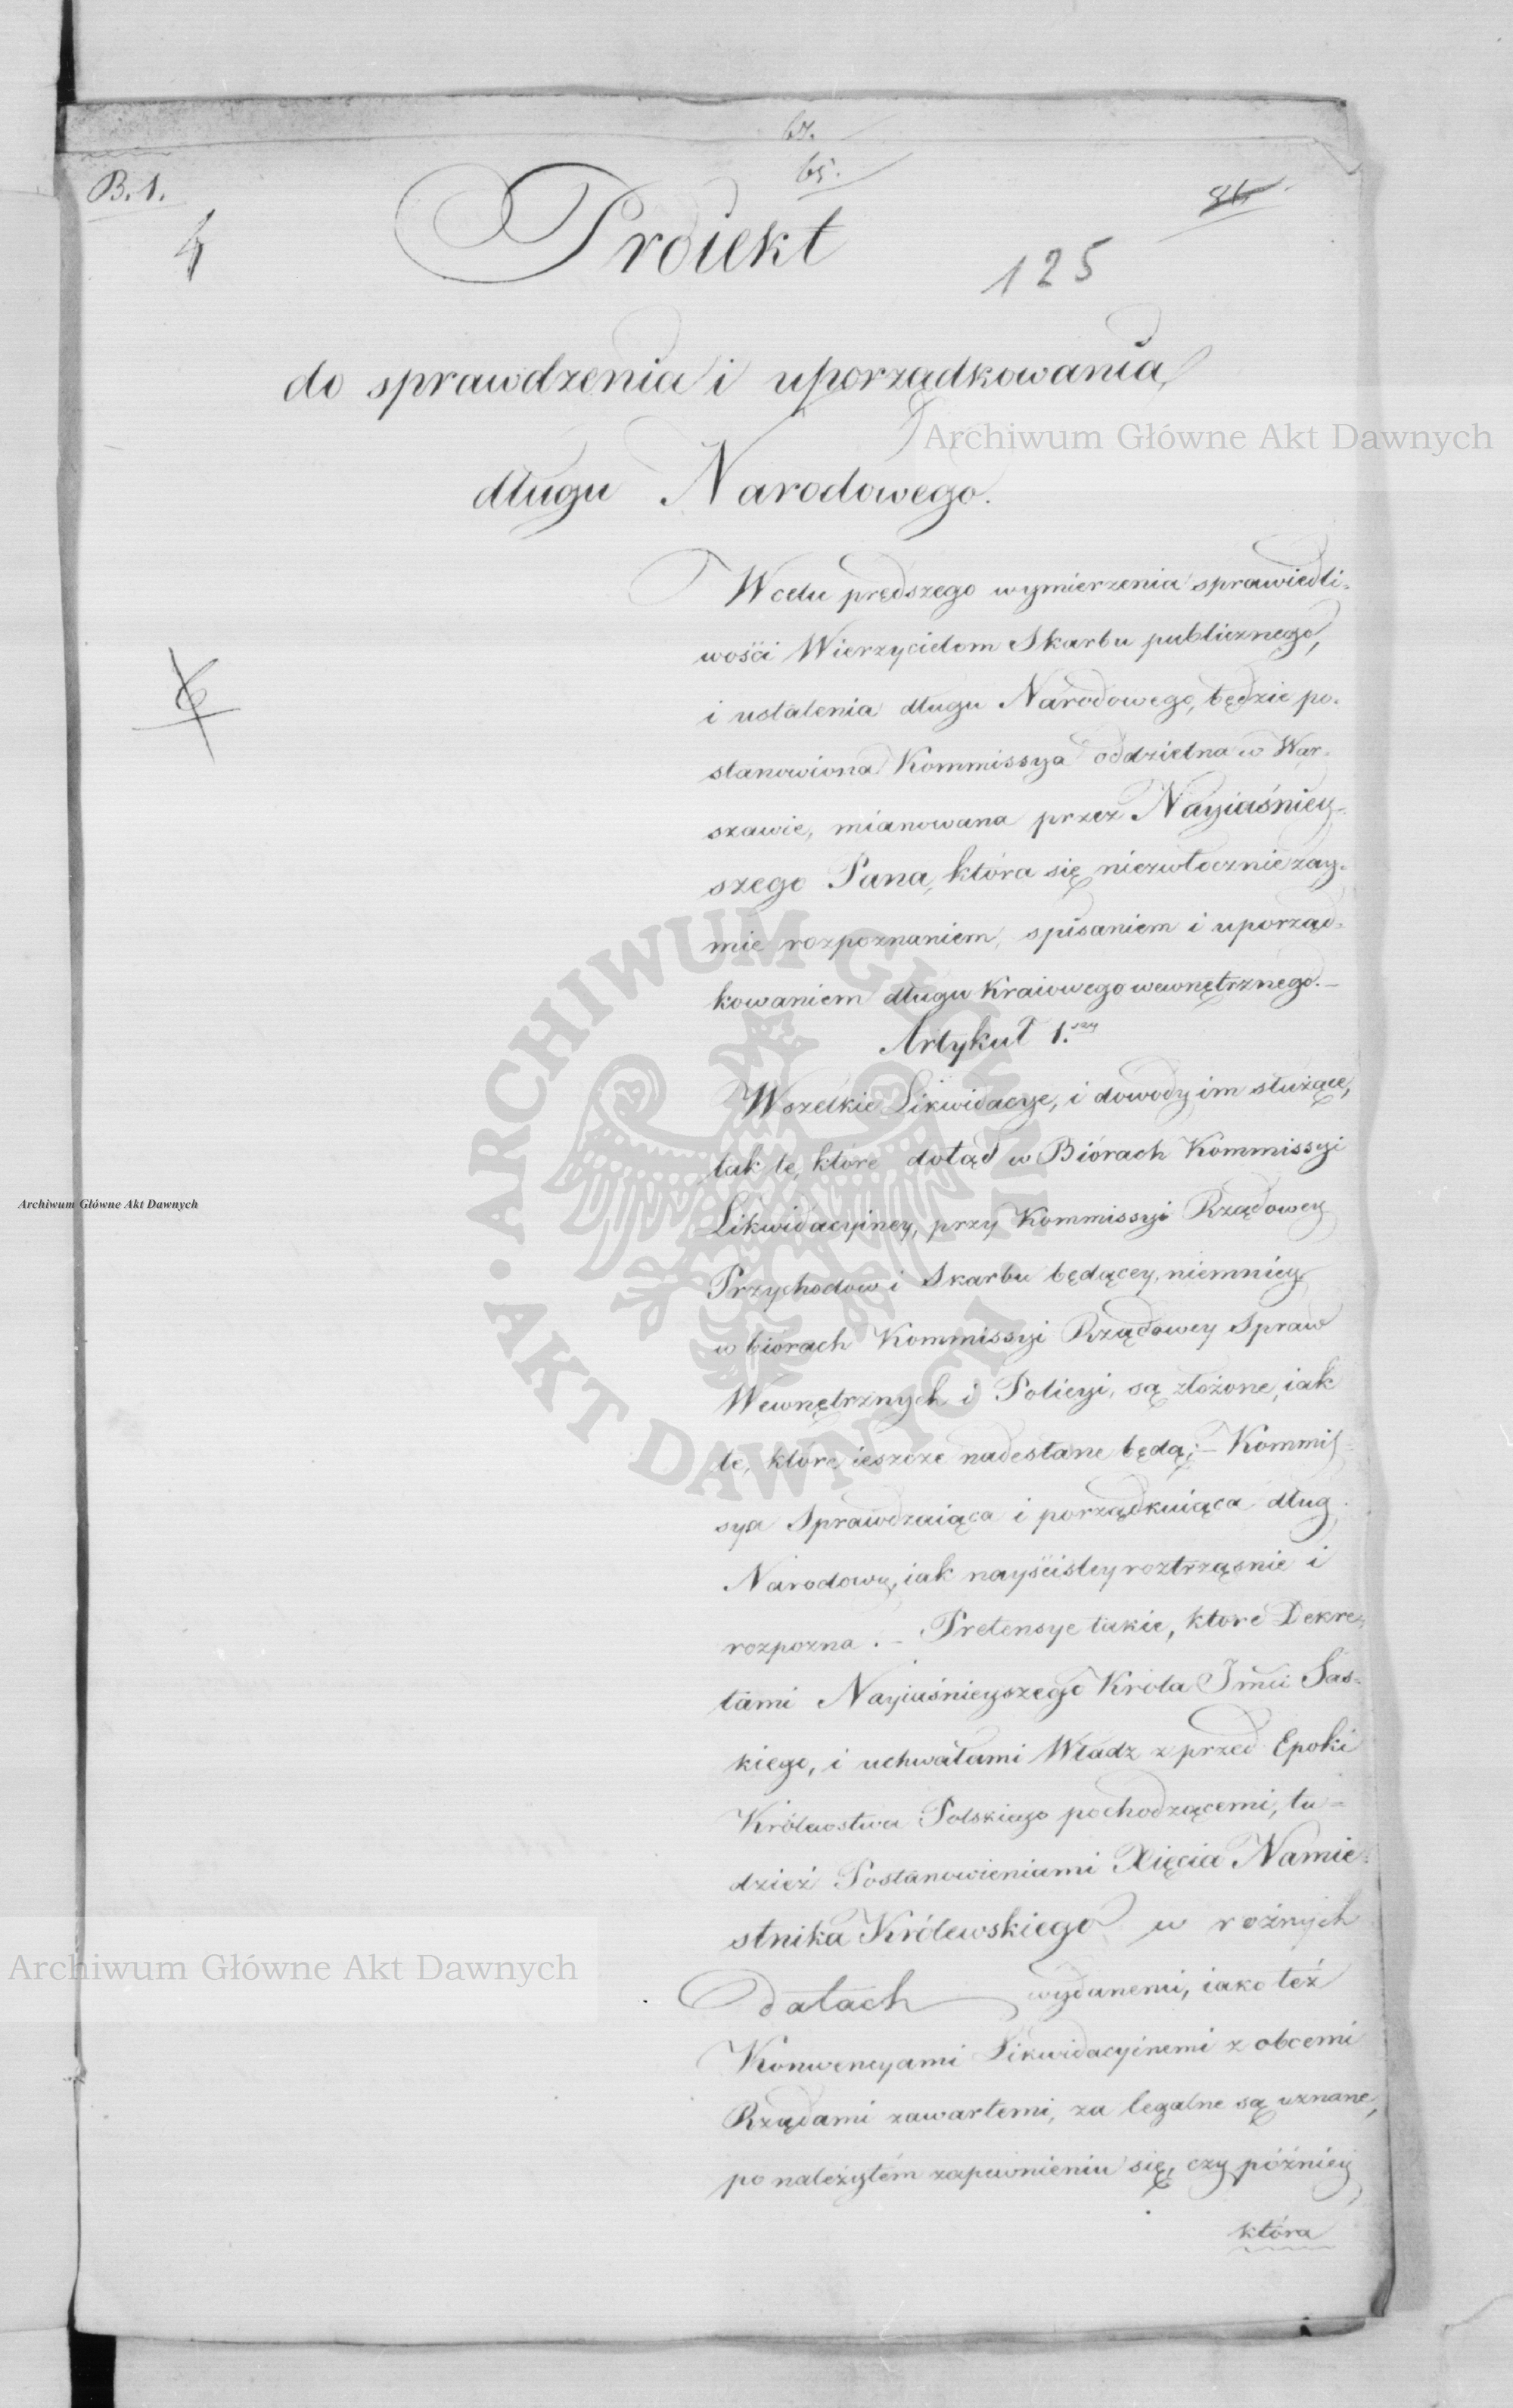 67.
65.
B. 1.
86
4
Proiekt
125
do sprawdzenia i uporządkowania
Archiwum Główne Akt Dawnych
długu Narodowego.
W celu prędszego wymierzenia sprawiedli-
wości Wierzycielom Skarbu publicznego,
i ustalenia długu Narodowego, będzie po-
stanowiona Kommissya oddzielna w War-
szawie, mianowana przez Nayiaśniey-
szego Pana, która się niezwłocznie zay-
mie rozpoznaniem, spisaniem i uporząd-
kowaniem długu Kraiowego wewnętrznego.–
Artykuł 1.szy
Wszelkie Likwidacye, i dowody im służące,
tak te, które dotąd w Biórach Kommissyi
Likwidacyiney, przy Kommissyi Rządowey
Archiwum Główne Akt Dawnych
Przychodow i Skarbu będącey, niemniey
w biorach Kommissyi Rządowey Spraw
Wewnętrznych i Policyi, są złożone, iak
te, które ieszcze nadesłane będą;– Kommis-
sya Sprawdzaiąca i porządkuiąca dług
Narodowy, iak nayściśley roztrząśnie i
rozpozna.– Pretensye takie, ktore Dekre-
tami Nayiaśnieyszego Króla Jmci Sas-
kiego, i uchwałami Władz z przed Epoki
Królewstwa Polskiego pochodzącemi, tu-
dzież Postanowieniami Xięcia Namie-
stnika Królewskiego w rożnych
Archiwum Główne Akt Dawnych
datach wydanemi, iako też
Konwencyami Likwidacyinemi z obcemi
Rządami zawartemi, za legalne są uznane,
po należytém zapewnieniu się, czy późniey
która
ARCHIWUM GŁÓWNE • AKT DAWNYCH •